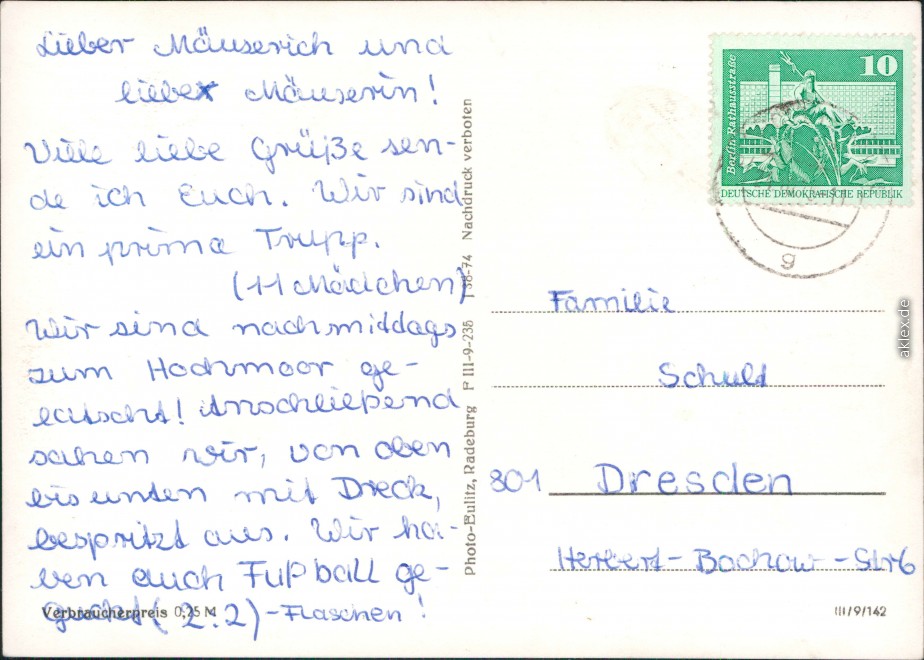 Lieber Mäuserich und
lieber Mäuserin!
Viele liebe Grüße sen-
de ich Euch. Wir sind
ein prima Trupp.
(11 Mädchen)
Wir sind nachmiddags
zum Hochmoor ge-
latscht! Anschließend
sahen wir, von oben
bis unten mit Dreck,
bespritzt aus. Wir ha-
ben auch Fußball ge-
guckt (2:2)-Flaschen!
Verbraucherpreis 0,25 M
Photo-Eulitz, Radeburg P III-9-235 J 38-74 Nachdruck verboten
10
Berlin-Rathausstraße
DEUTSCHE DEMOKRATISCHE REPUBLIK
g
Familie
Schult
801 Dresden
Herbert-Bochow-Str6
III/9/142
akpool.de